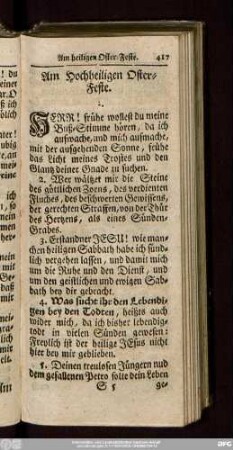 Am heiligen Oster-Feste. 417
Am Hochheiligen Oster-
Feste.
1.
HERR! frühe wollest du meine
Buß-Stimme hören, da ich
aufwache, und mich aufmache,
mit der aufgehenden Sonne, frühe
das Licht meines Trostes und den
Glantz deiner Gnade zu suchen.
2. Wer wältzet mir die Steine
des göttlichen Zorns, des verdienten
Fluches, des beschwerten Gewissens,
der gerechten Straffen, von der Thür
des Hertzens, als eines Sünden-
Grabes.
3. Erstandner JESU! wie man-
chen heiligen Sabbath habe ich sünd-
lich vergehen lassen, und damit mich
um die Ruhe und den Dienst, und
um den geistlichen und ewigen Sab-
bath bey dir gebracht.
4. Was sucht ihr den Lebendi-
gen bey den Todten, heißts auch
wider mich, da ich bisher lebendig
todt in vielen Sünden gewesen:
Freylich ist der heilige JEsus nicht
hier bey mir geblieben.
5. Deinen treulosen Jüngern und
dem gefallenen Petro solte dein Leben
S 5 ge-